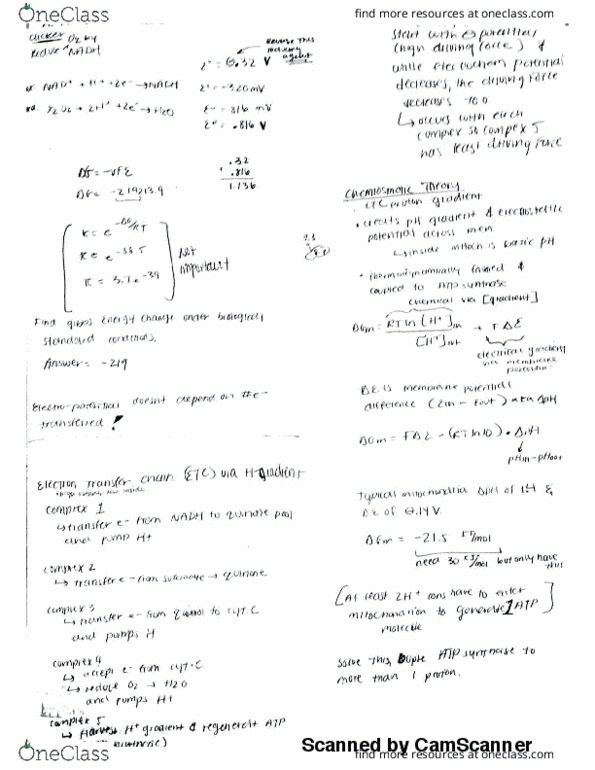 OneClass
find more resources at oneclass.com
clicker O2 by
reduce NADH
reverse this
reducing
agent
E° = 0.32 V
NAD+ + H+ + 2e- → NADH
E° = -320mV
½O2 + 2H+ + 2e- → H2O
E° = 816 mV
E° = .816 V
.32
+ .816
1.136
ΔG = -nFE
ΔG = -219213.9
K = e^-ΔG/RT
K = e
K = 3.7e
Not
important
Find gibbs Energy change under biological
standard conditions.
Answer = -219
Electro-potential doesnt depend on the e-
transferred!
Electron Transfer chain (ETC) via H+ Gradient
complex 1
↳ transfer e- from NADH to quinone pool
and pump H+
complex 2
↳ transfer e- from succinate → quinone
complex 3
↳ transfer e- from quinol to cyt. C
and pumps H
complex 4
↳ accept e- from cyt-C
↳ reduce O2 → H2O
and pumps H+
complex 5
↳ Harvest H+ gradient & regenerate ATP
start with ⊖ potential
(high driving force) &
while electrochem potential
decreases, the driving force
decreases to 0
↳ occurs with each
complex so complex 5
has least driving force
Chemiosmotic Theory
ETC proton gradient
• creates pH gradient & electrostatic
potential across mem
↳ inside mitoch is basic pH
• thermodynamically favored &
coupled to ATP synthase
chemical via [gradient]
ΔGm = RTln [H+]in + FΔE
[H+]out
electrical gradient
via membrane
potential
ΔE is membrane potential
difference (Ein - Eout) aka ΔpH
ΔGm = FΔE - (RTln10) • ΔpH
pHin - pHout
Typical mitochondria ΔpH of 1.4 &
ΔE of 0.14V.
ΔGm = -21.5 KJ/mol
need 30 KJ/mol but only have
this
[At least 2H+ ions have to enter
mitochondrion to generate 1 ATP]
molecule
Solve this, couple ATP synthase to
more than 1 proton.
OneClass
Scanned by CamScanner
find more resources at oneclass.com